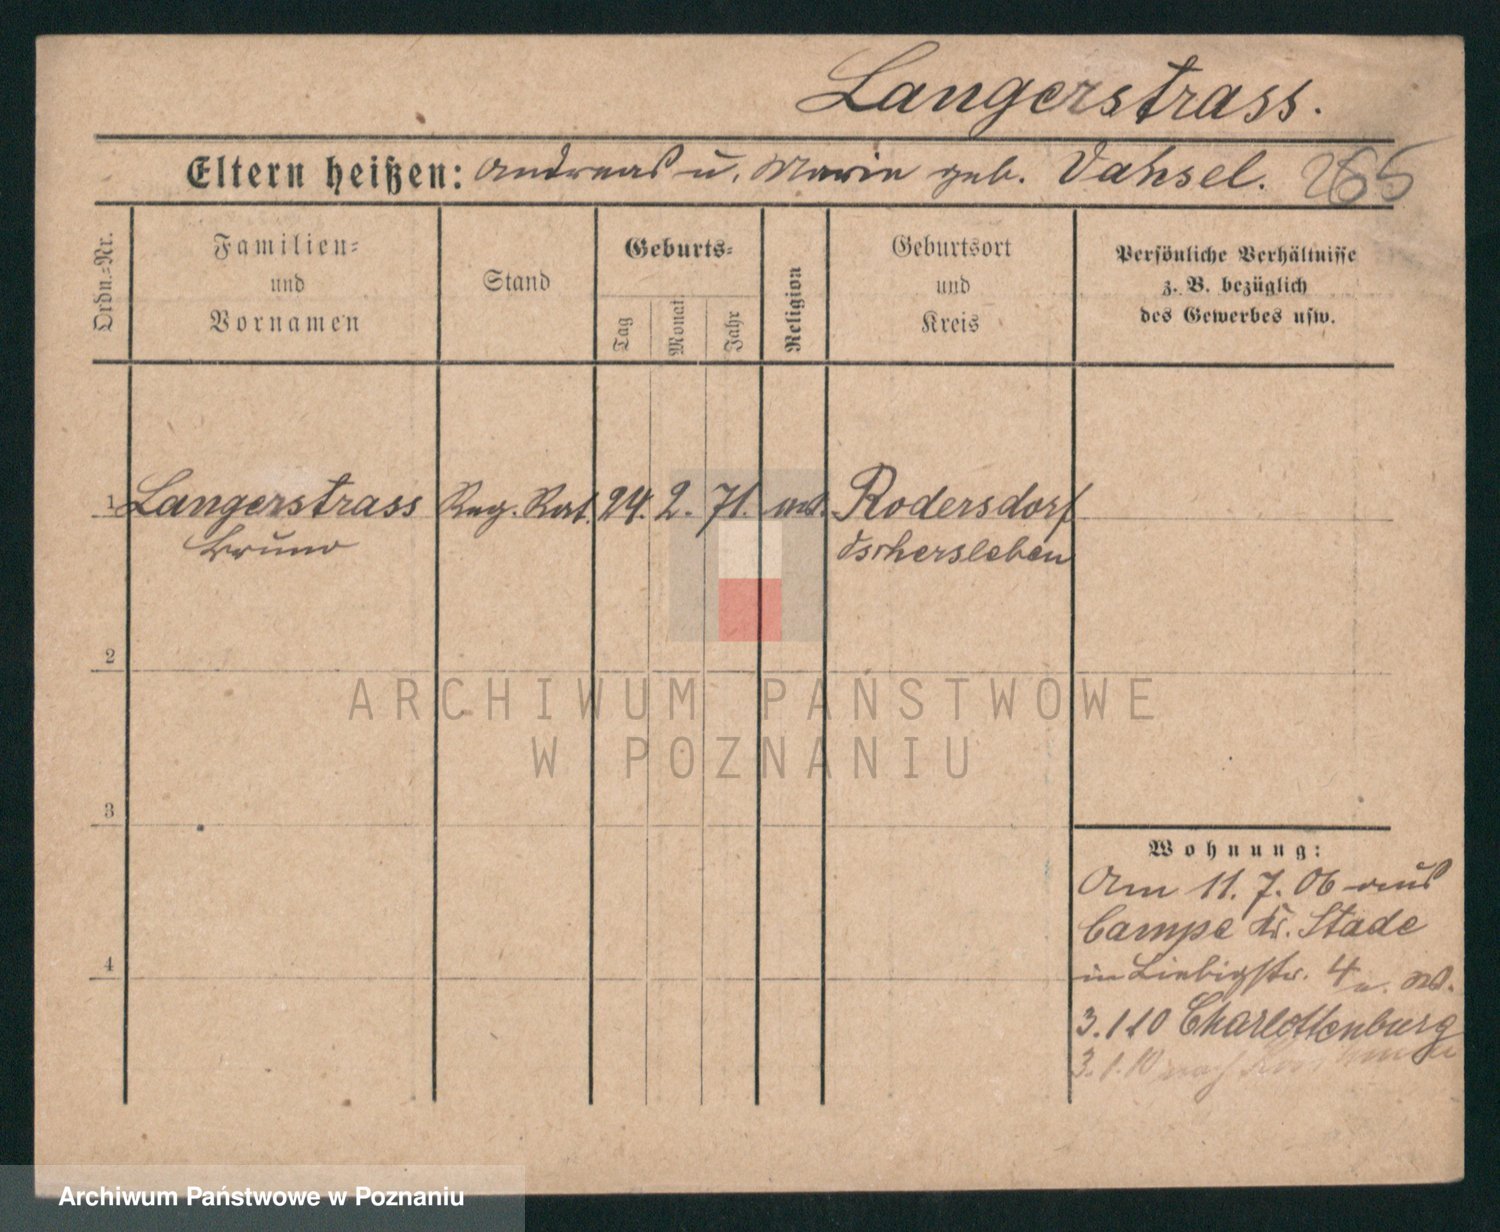 Langerstrass.
Eltern heißen: Andreas u. Marie geb. Vahsel. 265
Ordn.-Nr.
Familien-
und
Vornamen
Stand
Geburts-
Tag
Monat
Jahr
Religion
Geburtsort
und
Kreis
Persönliche Verhältnisse
z. B. bezüglich
des Gewerbes usw.
1 Langerstrass Reg. Rat. 24. 2. 71. Rodersdorf
Bruno Oschersleben
2
3
4
Wohnung:
Am 11. 7. 06 aus
Campe Kr. Stade
in Liebigstr. 4
3.1.10 Charlottenburg
3.1.10 nach
ARCHIWUM PAŃSTWOWE
W POZNANIU
Archiwum Państwowe w Poznaniu